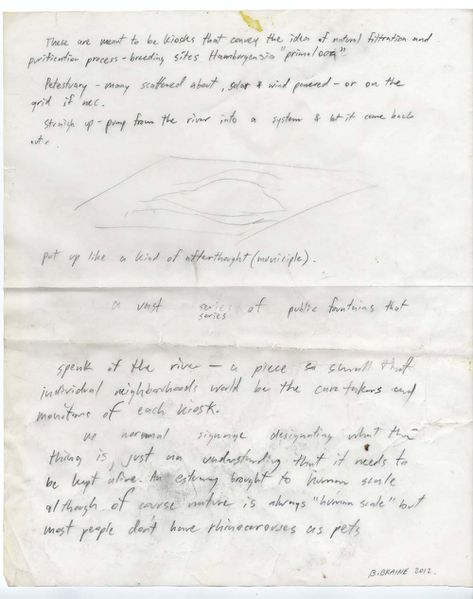 These are meant to be kiosks that convey the idea of natural filtration and
purification process - breeding sites Hamburgensia "primal ooze"
Petestuary - many scattered about, solar & wind powered - or on the
grid if nec.
straight up - pump from the river into a system & let it come back
out.
put up like a kind of afterthought (municiple).
a vast series of public fountains that
series
speak of the river - a piece so small that
individual neighborhoods would be the caretakers and
monitors of each kiosk.
no normal signage designating what the
thing is, just an understanding that it needs to
be kept alive. An estuary brought to human scale
although of course nature is always "human scale" but
most people dont have rhinocerouses as pets
B. BRAINE 2012.